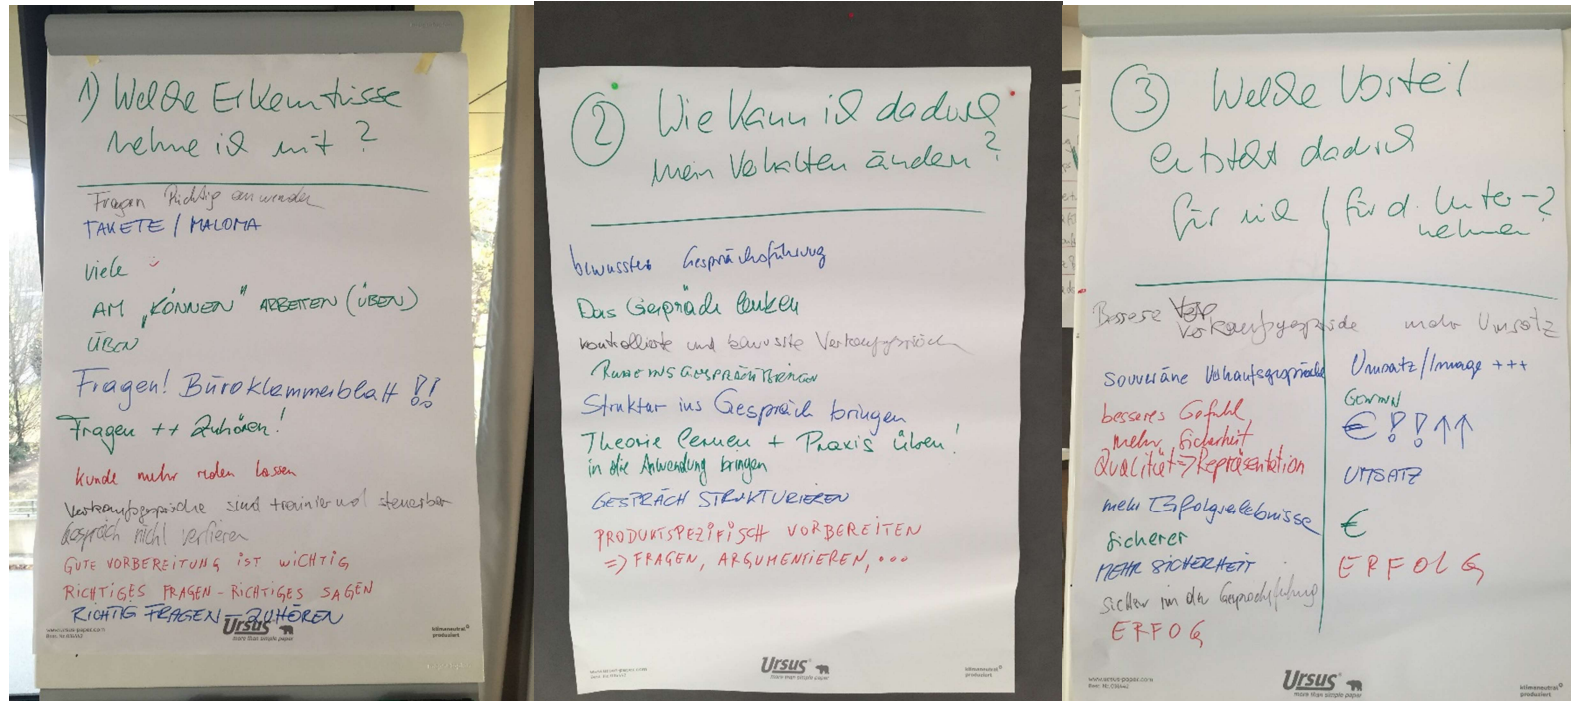 1) Welche Erkenntnisse
nehme ich mit?
Fragen Richtig anwenden
TAKETE / MALOMA
viele
AM „KÖNNEN" ARBEITEN (ÜBEN)
ÜBEN
Fragen! Büroklammerblatt !!
Fragen ++ Zuhören!
Kunde mehr reden lassen
Verkaufsgespräche sind trainier und steuerbar
Gespräch nicht verlieren
GUTE VORBEREITUNG IST WICHTIG
RICHTIGES FRAGEN - RICHTIGES SAGEN
RICHTIG FRAGEN - ZUHÖREN
www.ursus-paper.com
Ursus®
more than simple paper
klimaneutral
produziert
2 Wie kann ich dadurch
mein Verhalten ändern?
bewusstes Gesprächsführung
Das Gespräch lenken
kontrollierte und bewusste Verkaufsgespräch
RUHE INS GESPRÄCH BRINGEN
Struktur ins Gespräch bringen
Theorie lernen + Praxis üben!
in die Anwendung bringen
GESPRÄCH STRUKTURIEREN
PRODUKTSPEZIFISCH VORBEREITEN
=> FRAGEN, ARGUMENTIEREN, ...
Ursus®
more than simple paper
klimaneutral
produziert
3 Welche Vorteil
entsteht dadurch
für mich / für d. Unter-?
nehmen
Bessere Verkaufsgespräche mehr Umsatz
souveräne Verkaufsgespräche Umsatz/Image +++
besseres Gefühl, GEWINN
mehr Sicherheit € !! ↑↑
Qualität => Repräsentation
UMSATZ
mehr Erfolgserlebnisse €
sicherer
MEHR SICHERHEIT ERFOLG
sicher in der Gesprächsführung
ERFOG
www.ursus-paper.com
Ursus®
more than simple paper
klimaneutral
produziert